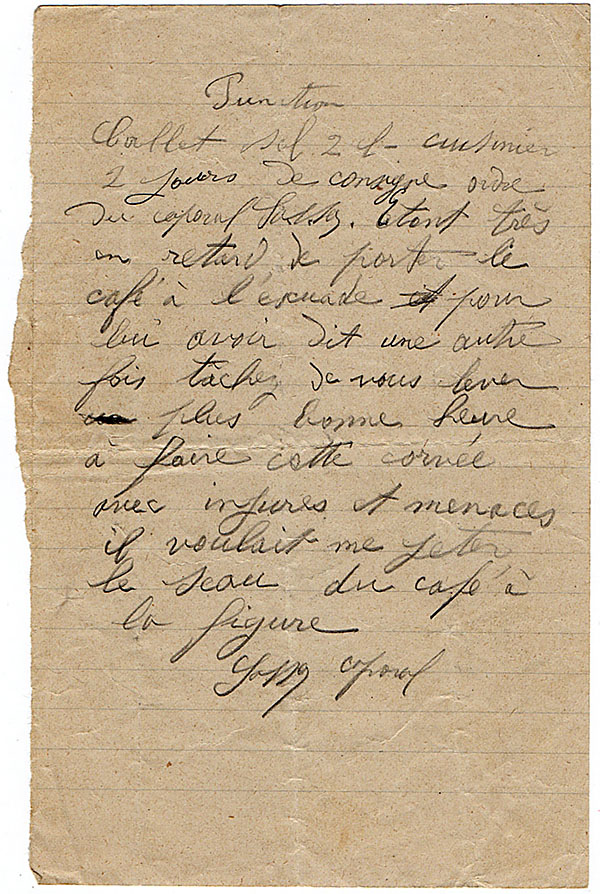 Punition
Collet sol 2 cl cuisinier
2 jours de consigne ordre
du caporal. Etant très
en retard de porter le
café à l'escuade et pour
lui avoir dit une autre
fois tachez de vous lever
plus bonne heure
à faire cette corvée
avec injures et menaces
il voulait me jeter
le seau du café à
la figure
caporal